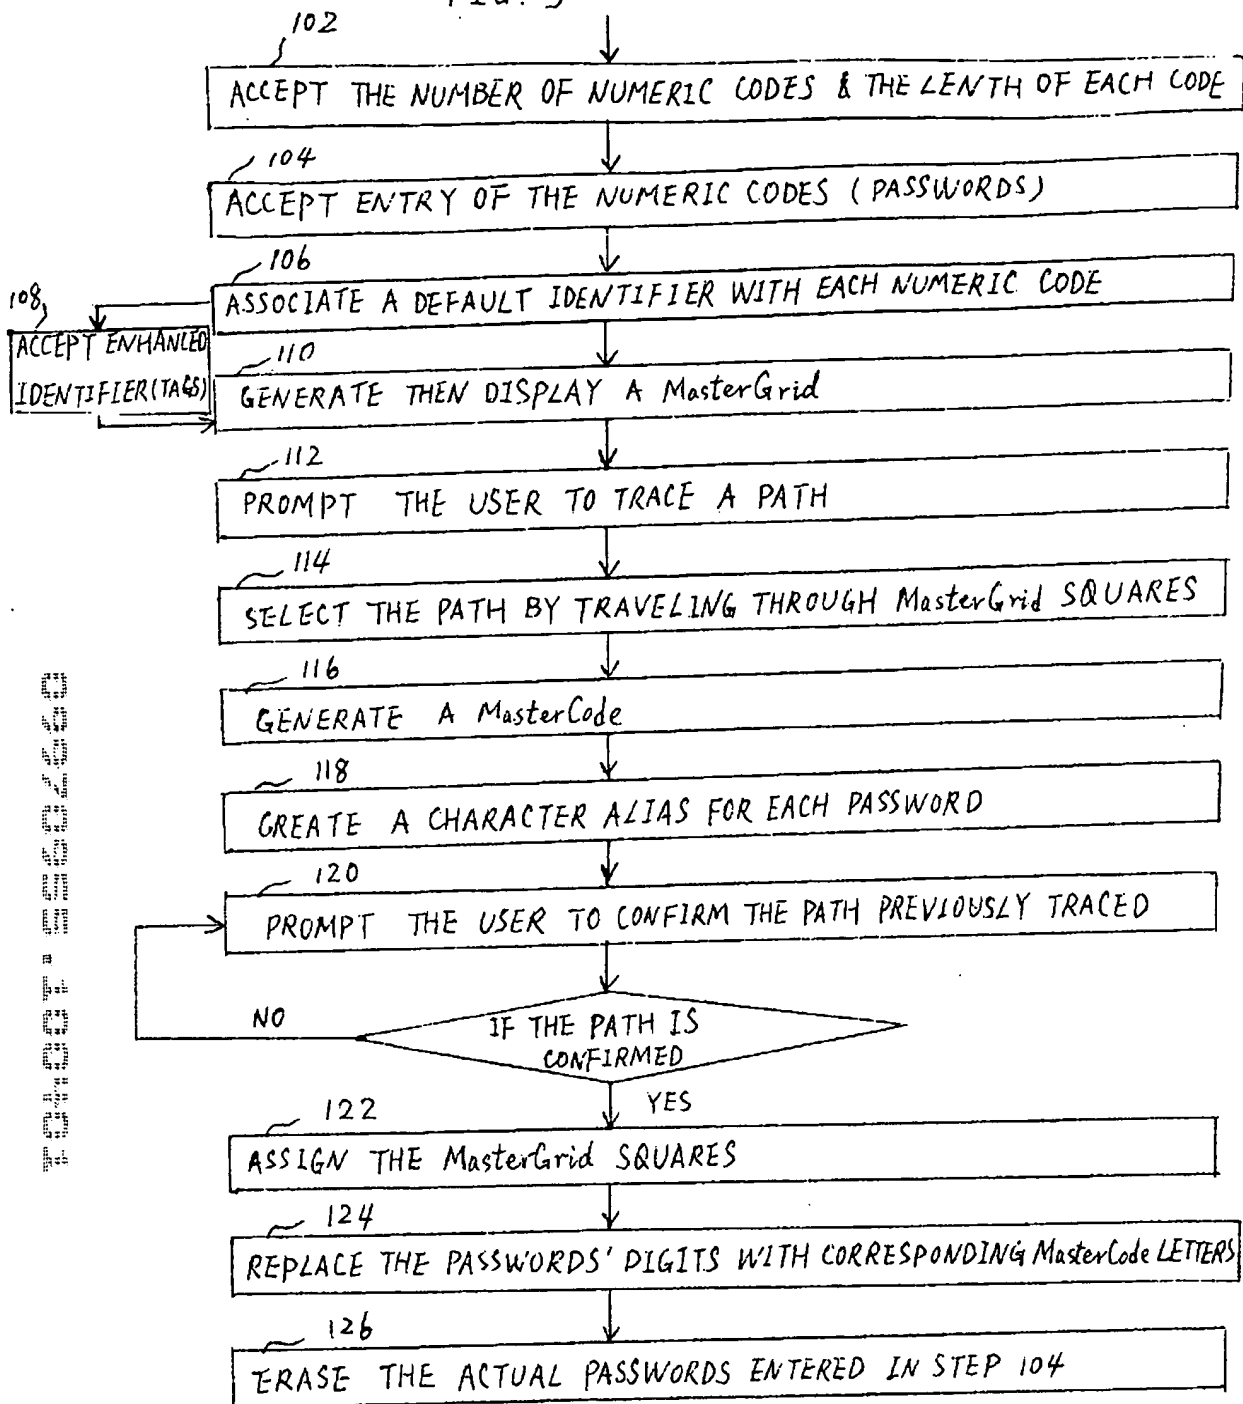 102
ACCEPT THE NUMBER OF NUMERIC CODES & THE LENTH OF EACH CODE
104
ACCEPT ENTRY OF THE NUMERIC CODES (PASSWORDS)
106
ASSOCIATE A DEFAULT IDENTIFIER WITH EACH NUMERIC CODE
108
ACCEPT ENHANCED
IDENTIFIER(TAGS)
110
GENERATE THEN DISPLAY A MasterGrid
112
PROMPT THE USER TO TRACE A PATH
114
SELECT THE PATH BY TRAVELING THROUGH MasterGrid SQUARES
116
GENERATE A MasterCode
118
CREATE A CHARACTER ALIAS FOR EACH PASSWORD
120
PROMPT THE USER TO CONFIRM THE PATH PREVIOUSLY TRACED
NO
IF THE PATH IS
CONFIRMED
YES
122
ASSIGN THE MasterGrid SQUARES
124
REPLACE THE PASSWORDS' DIGITS WITH CORRESPONDING MasterCode LETTERS
126
ERASE THE ACTUAL PASSWORDS ENTERED IN STEP 104